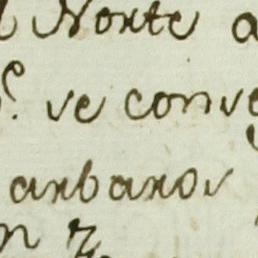 l Norte a
se conve
arbaros
n